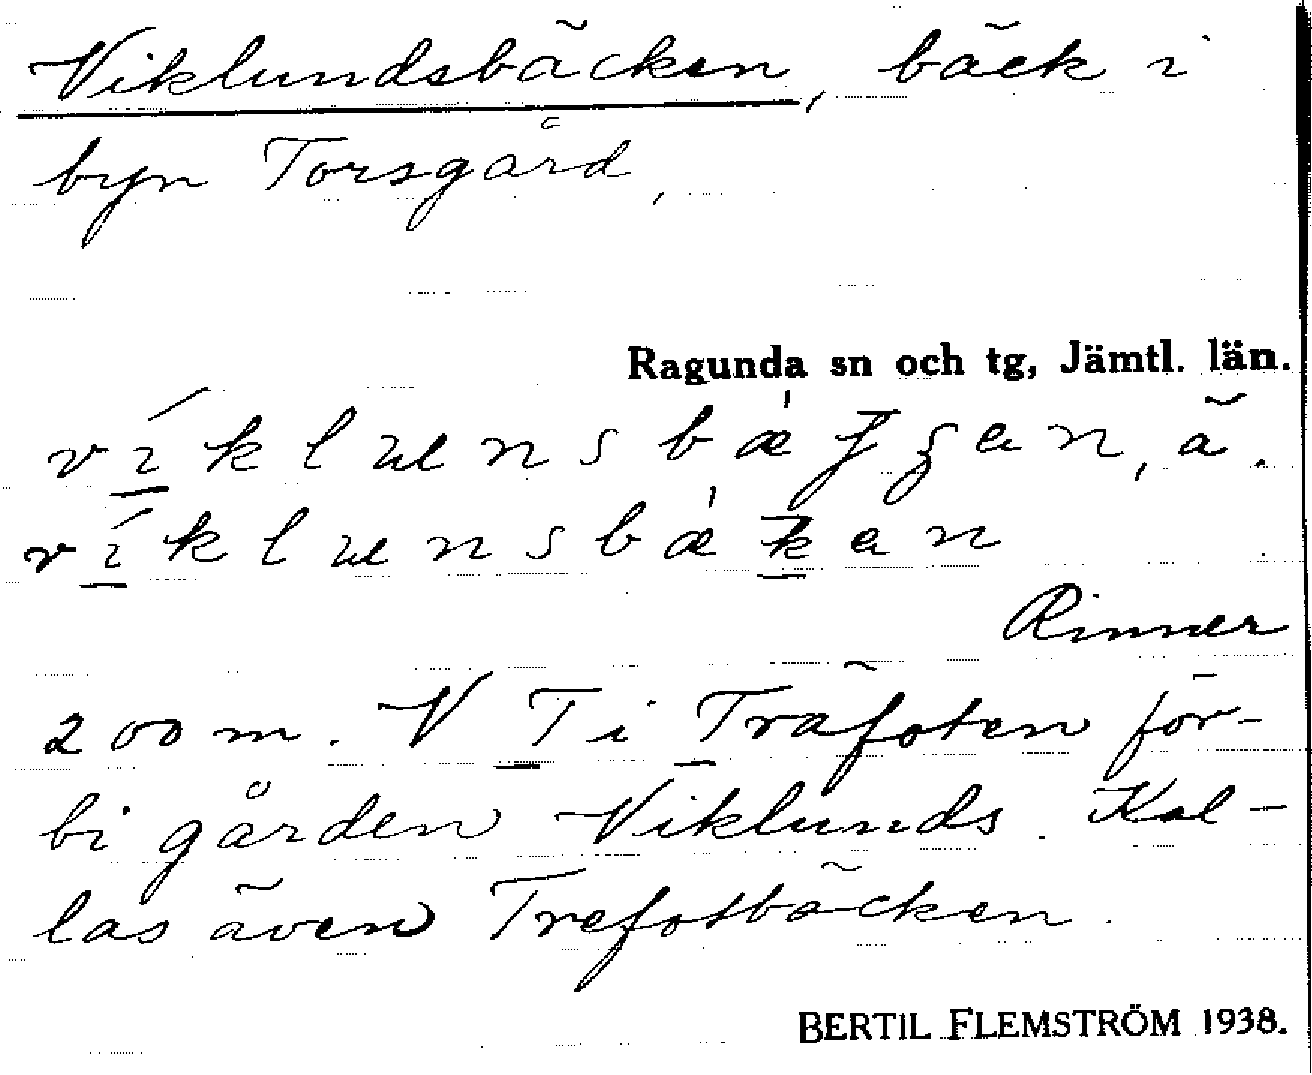 Viklundsbäcken, bäck i
byn Torsgård,
Ragunda sn och tg, Jämtl. län.
Rinner
200 m. V T i Träfoten för-
bi gården Viklunds. Kal-
las även Trefotbäcken.
BERTIL FLEMSTRÖM 1938.